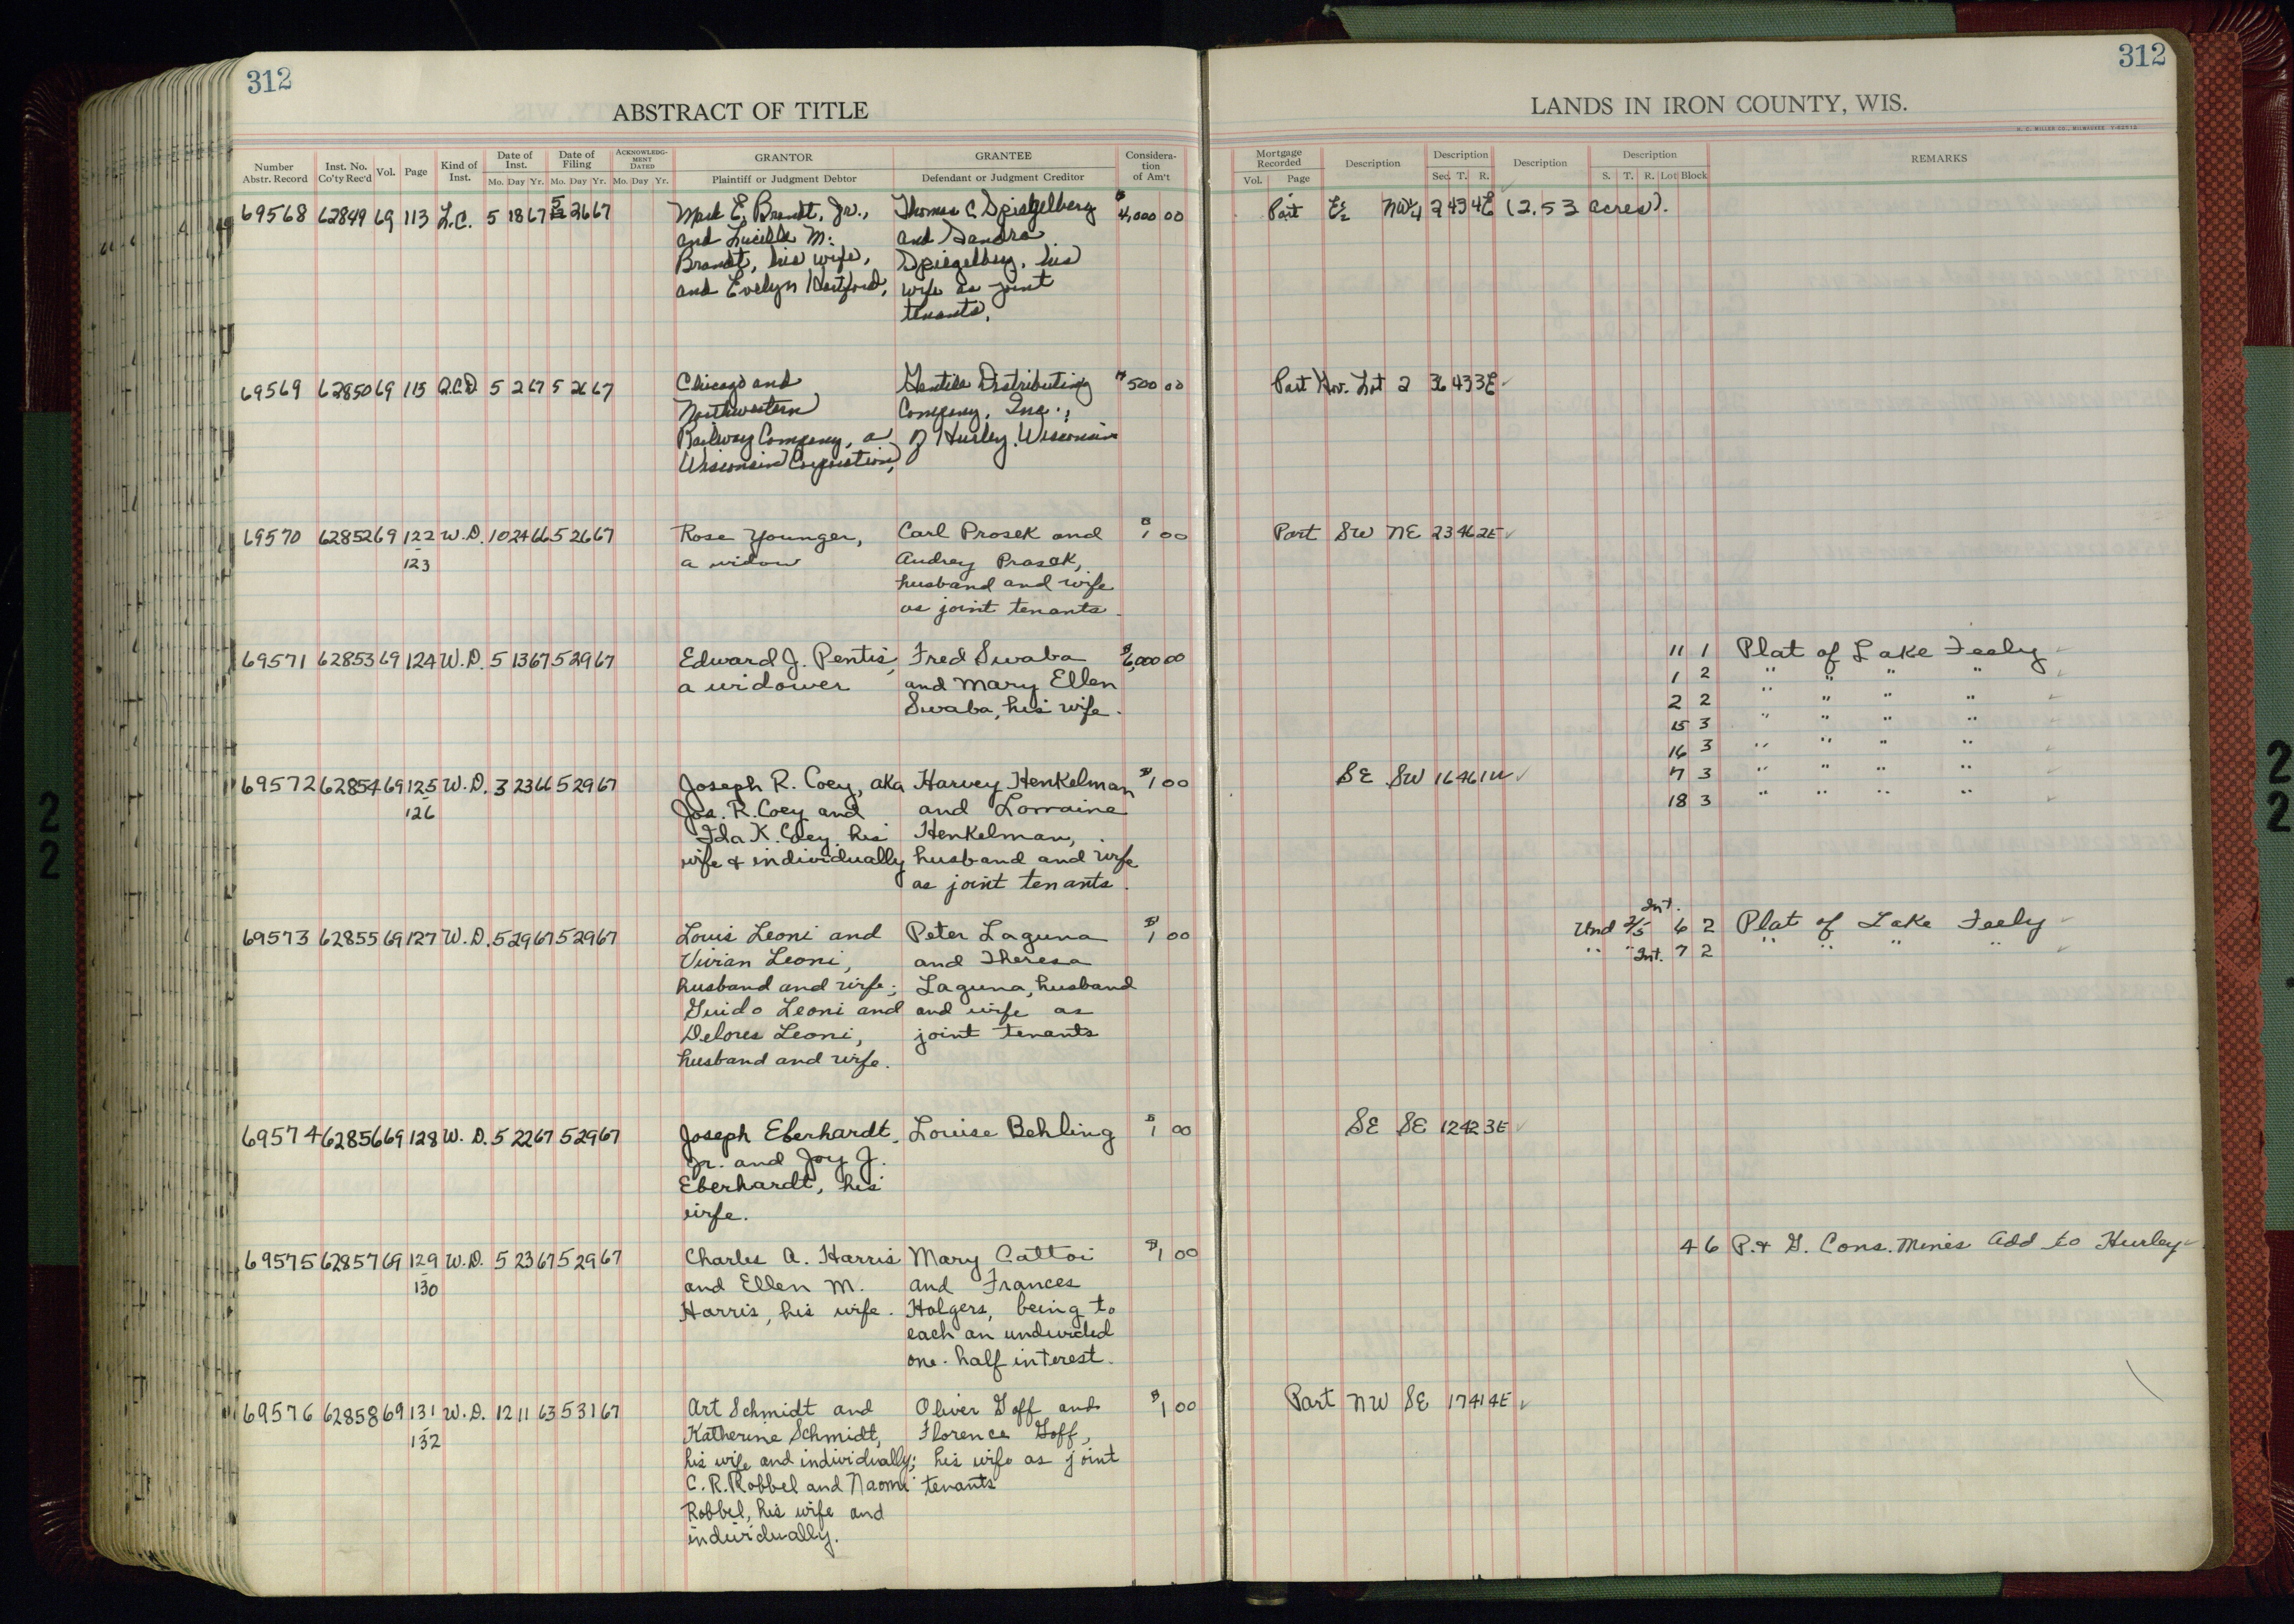 312
312
ABSTRACT OF TITLE
LANDS IN IRON COUNTY, WIS.
H. C. MILLER CO., MILWAUKEE
Number Abstr. Record Inst. No. Co'ty Rec'd Vol. Page Kind of Inst. Date of Inst. Mo. Day Yr. Date of Filing Mo. Day Yr. ACKNOWLEDGMENT DATED Mo. Day Yr. GRANTOR Plaintiff or Judgment Debtor GRANTEE Defendant or Judgment Creditor Consideration of Am't
Mortgage Recorded Vol. Page Description Description Sec. T. R. Description Description S. T. R. Lot Block REMARKS
69568 62849 69 113 L.C. 5 18 67 5 26 67 E. Brandt, Jr., Thomas C. Spiegelberg $4,000 00 Part E½ NW¼ 2 43 4E (2.53 acres).
and Lucille M. and Sandra
Brandt, his wife, Spiegelberg, his
and Evelyn Hartford, wife as joint
tenants.
69569 62850 69 115 Q.C.D. 5 2 67 5 26 67 Chicago and Distributing $500 00 Part Gov. Lot 2 36 43 3E
Northwestern Company, Inc.,
Railway Company, a of Hurley, Wisconsin
Wisconsin Corporation,
69570 62852 69 122 W.D. 10 24 66 5 26 67 Rose Younger, Carl Prosek and $1 00 Part SW NE 23 46 2E
-123 a widow Audrey Prosek,
husband and wife
as joint tenants.
69571 62853 69 124 W.D. 5 13 67 5 29 67 Edward J. Pentis, Fred Swaba $6,000 00 11 1 Plat of Lake Feely
a widower and Mary Ellen 1 2 " " " "
Swaba, his wife. 2 2 " " " "
15 3 " " " "
16 3 " " " "
69572 62854 69 125 W.D. 3 23 66 5 29 67 Joseph R. Coey, aka Harvey Henkelman $1 00 SE SW 16 46 1W 7 3 " " " "
-126 Jos. R. Coey and and Lorraine 18 3 " " " "
Ida K. Coey, his Henkelman,
wife & individually husband and wife
as joint tenants.
Int.
69573 62855 69 127 W.D. 5 29 67 5 29 67 Louis Leoni and Peter Laguna $1 00 Und 2/5 6 2 Plat of Lake Feely
Vivian Leoni, and Theresa " " Int. 7 2 " " " "
husband and wife; Laguna, husband
Guido Leoni and and wife as
Delores Leoni, joint tenants
husband and wife.
69574 62856 69 128 W.D. 5 22 67 5 29 67 Joseph Eberhardt, Louise Behling $1 00 SE SE 12 42 3E
Jr. and Joy J.
Eberhardt, his
wife.
69575 62857 69 129 W.D. 5 23 67 5 29 67 Charles A. Harris Mary Cattoi $1 00 4 6 P. & G. Cons. Mines Add to Hurley
-130 and Ellen M. and Frances
Harris, his wife. Holgers, being to
each an undivided
one-half interest.
69576 62858 69 131 W.D. 12 11 63 5 31 67 Art Schmidt and Oliver Goff and $1 00 Part NW SE 17 41 4E
-132 Katherine Schmidt, Florence Goff,
his wife and individually; his wife as joint
C. R. Robbel and Naomi tenants
Robbel, his wife and
individually.
22
22